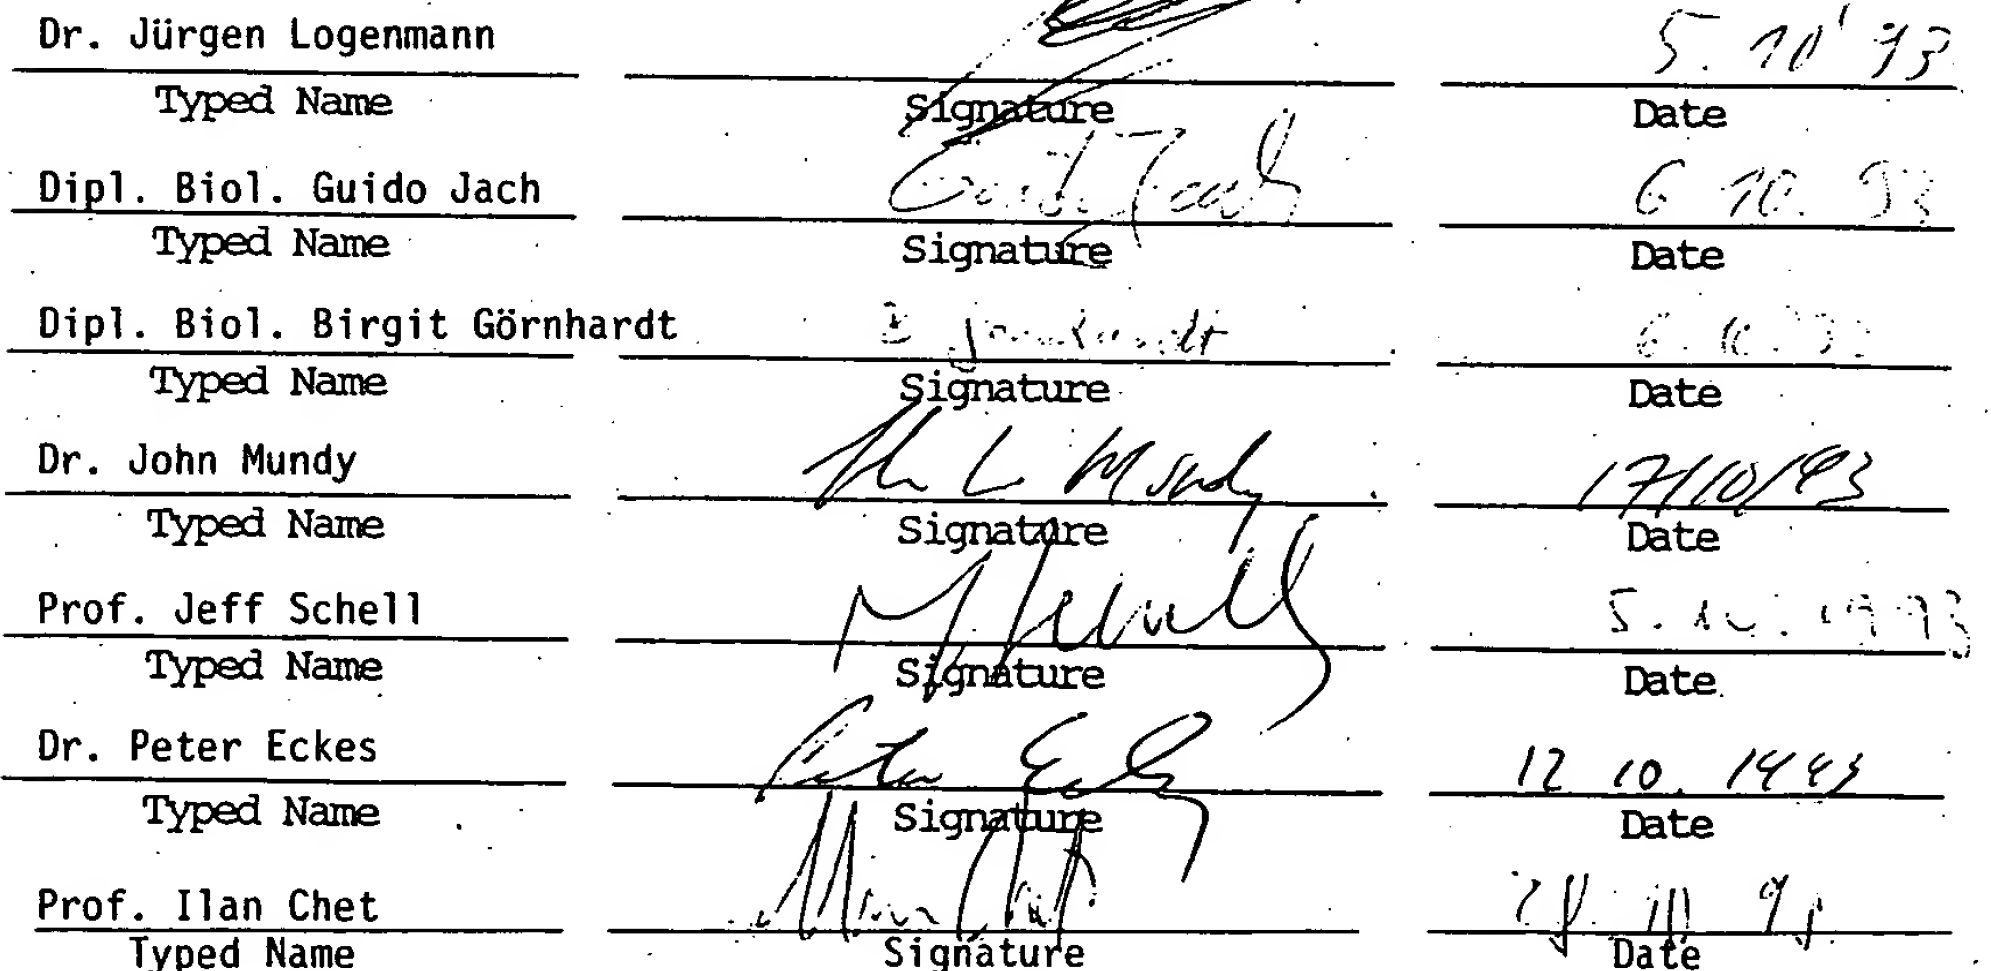 Dr. Jürgen Logenmann 5. 10' 93
Typed Name Signature Date
Dipl. Biol. Guido Jach Guido Jach 6 10. 93
Typed Name Signature Date
Dipl. Biol. Birgit Görnhardt
Typed Name Signature Date
Dr. John Mundy John L Mundy 17/10/93
Typed Name Signature Date
Prof. Jeff Schell 5. 10. 1993
Typed Name Signature Date
Dr. Peter Eckes Peter Eckes 12 10. 1993
Typed Name Signature Date
Prof. Ilan Chet Ilan Chet
Typed Name Signature Date